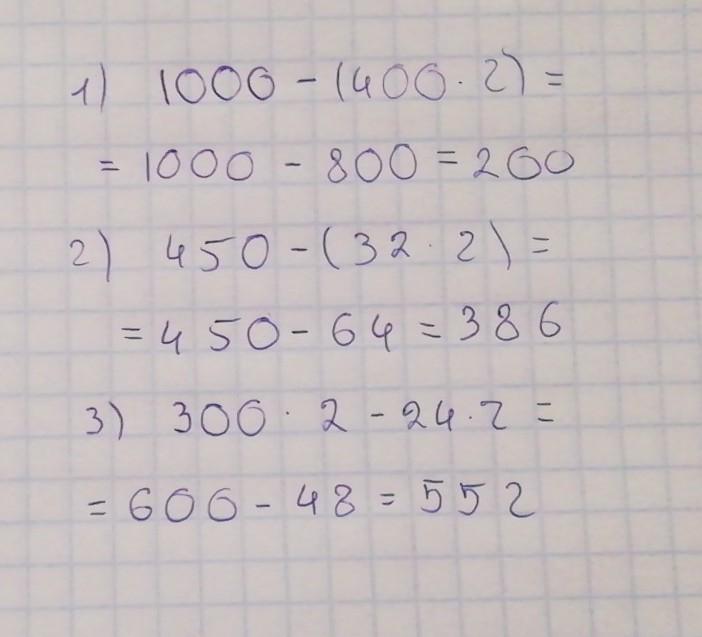 1) 1000 - (400 · 2) =
= 1000 - 800 = 200
2) 450 - (32 · 2) =
= 450 - 64 = 386
3) 300 · 2 - 24 · 2 =
= 600 - 48 = 552